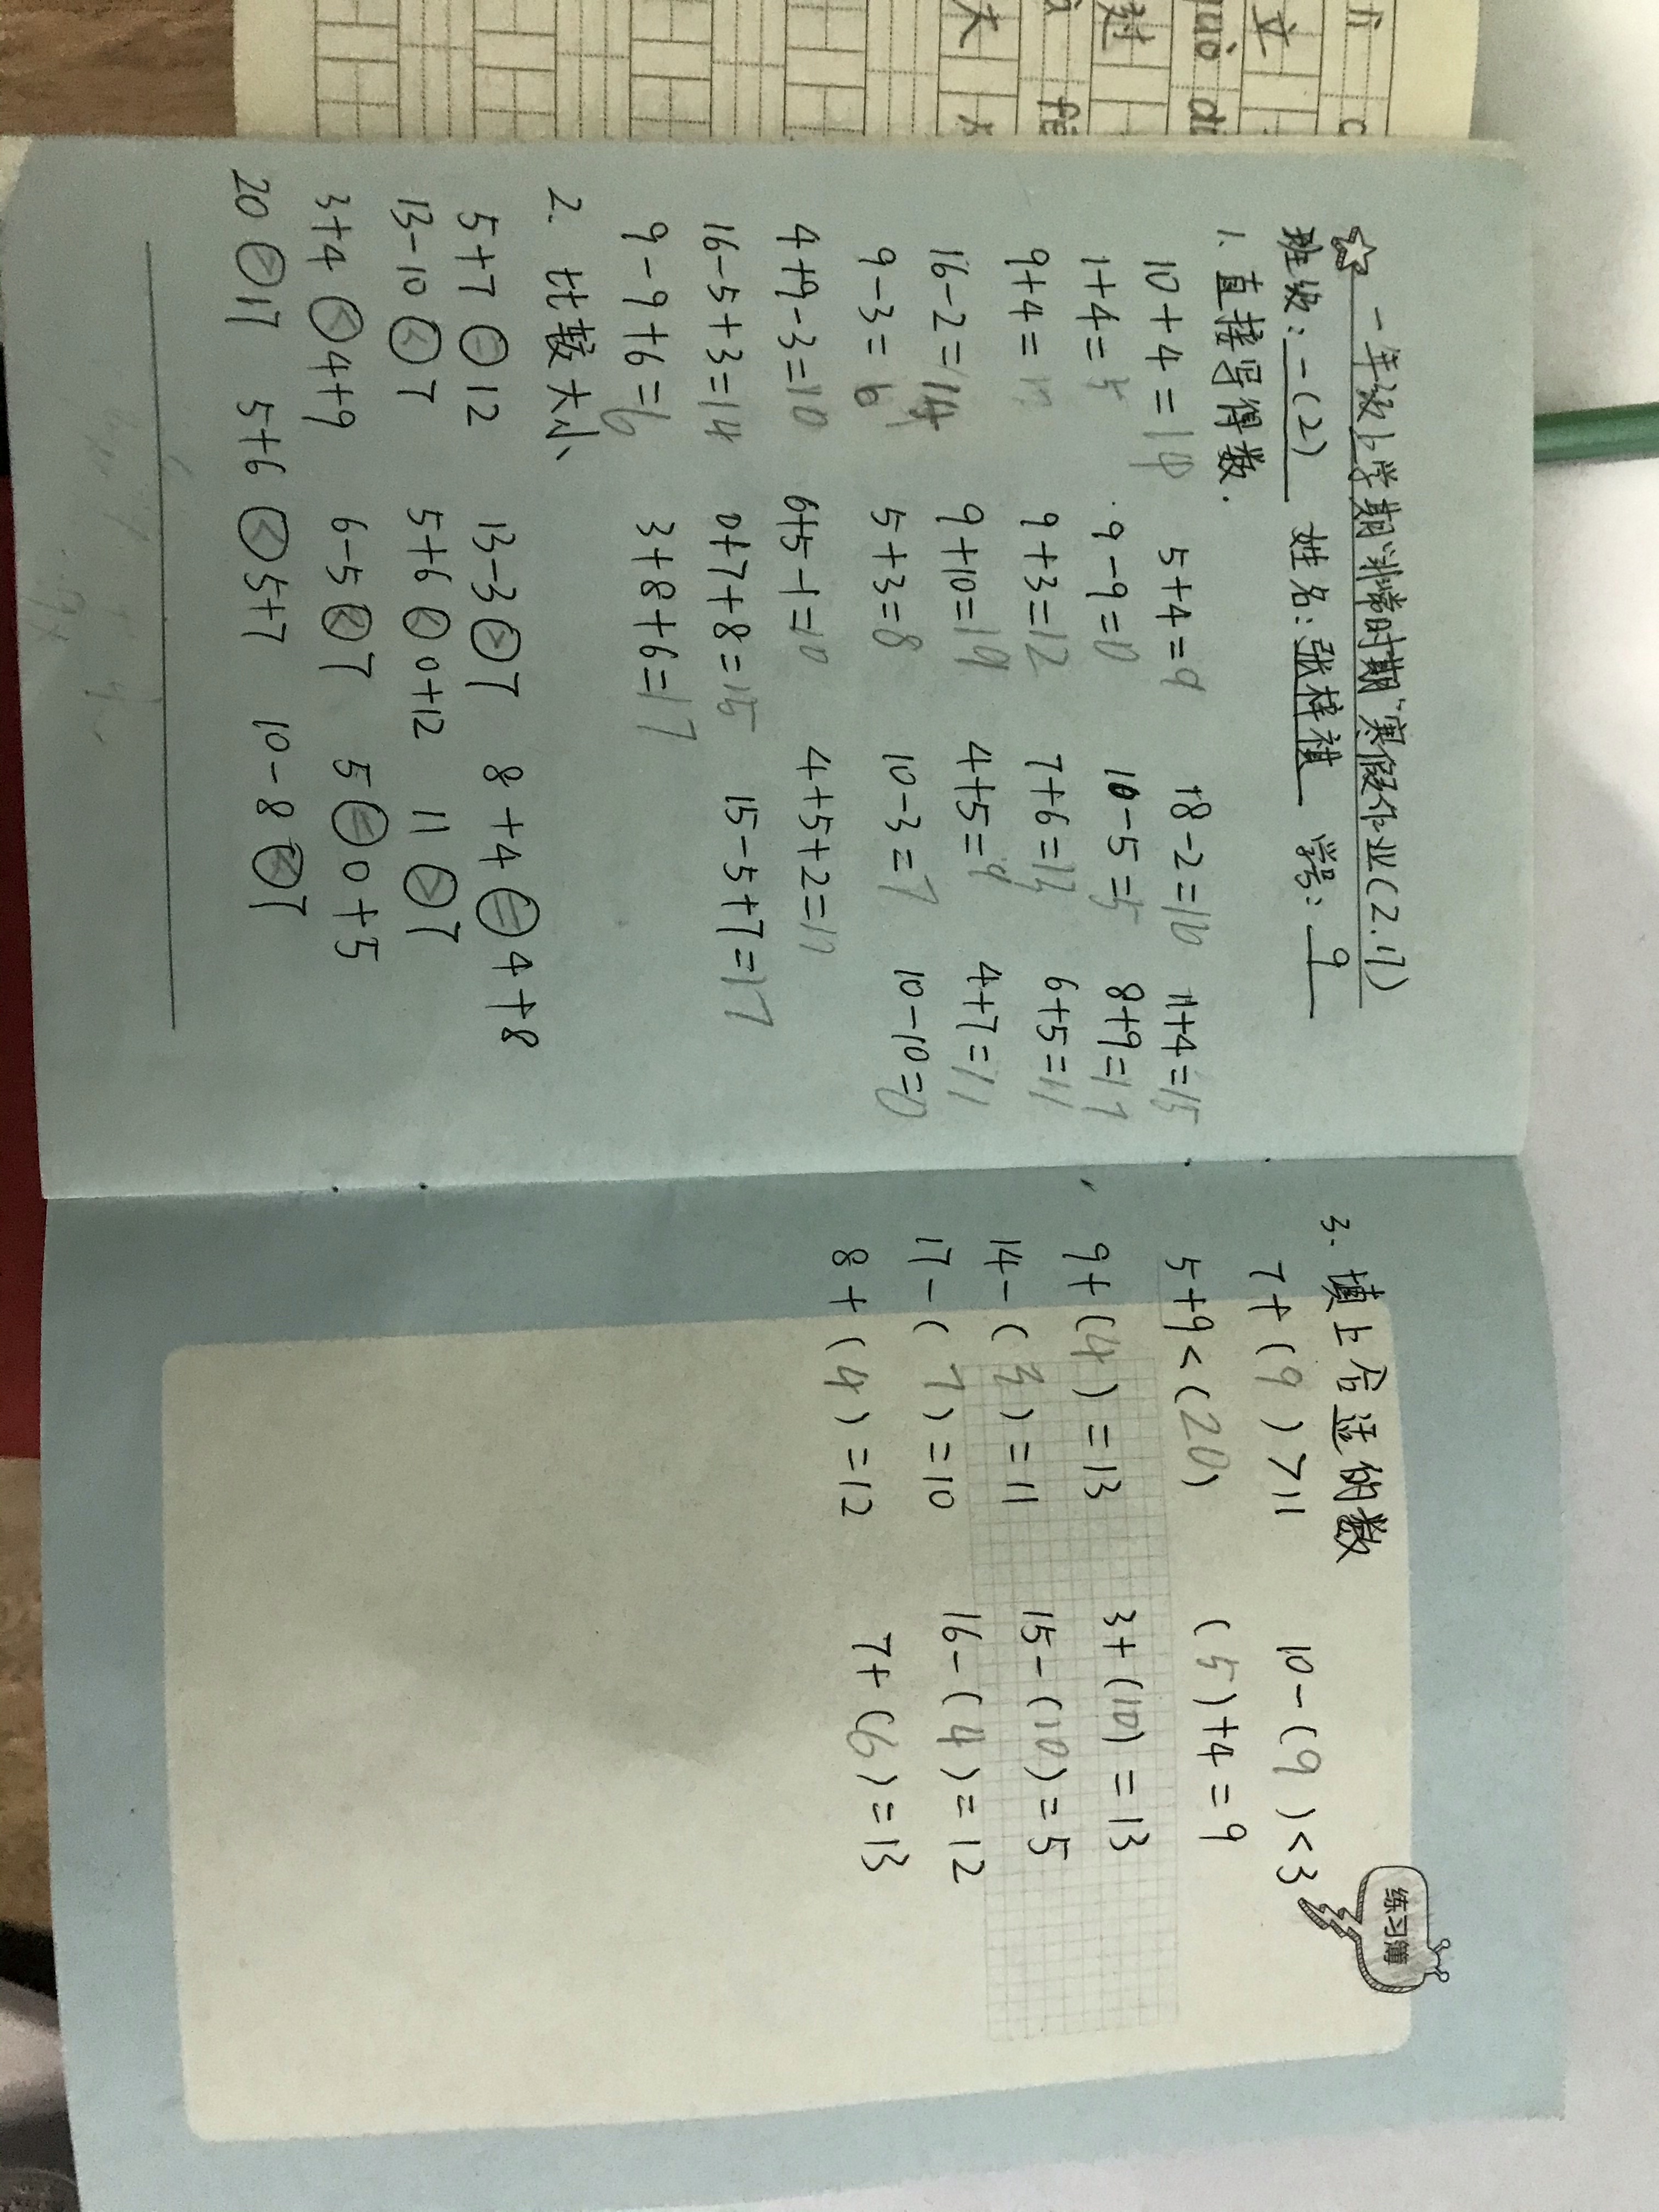 ☆一年级上学期"非常时期"寒假作业(2.17)
班级:一(2) 姓名:张梓祺 学号:9
1. 直接写得数.
10+4=14 5+4=9 18-2=16 11+4=15
1+4=5 9-9=0 10-5=5 8+9=17
9+4= 9+3=12 7+6=13 6+5=11
16-2=14 9+10=19 4+5=9 4+7=11
9-3=6 5+3=8 10-3=7 10-10=0
4+9-3=10 6+5-1=10 4+5+2=11
16-5+3=14 0+7+8=15 15-5+7=17
9-9+6=6 3+8+6=17
2. 比较大小
5+7=12 13-3>7 8+4=4+8
13-10<7 5+6<0+12 11>7
3+4<4+9 6-5<7 5=0+5
20>17 5+6<5+7 10-8<7
3. 填上合适的数
7+(9)>11 10-(9)<3
5+9<(20) (5)+4=9
9+(4)=13 3+(10)=13
14-(3)=11 15-(10)=5
17-(7)=10 16-(4)=12
8+(4)=12 7+(6)=13
练习簿
立
guò
赵
大